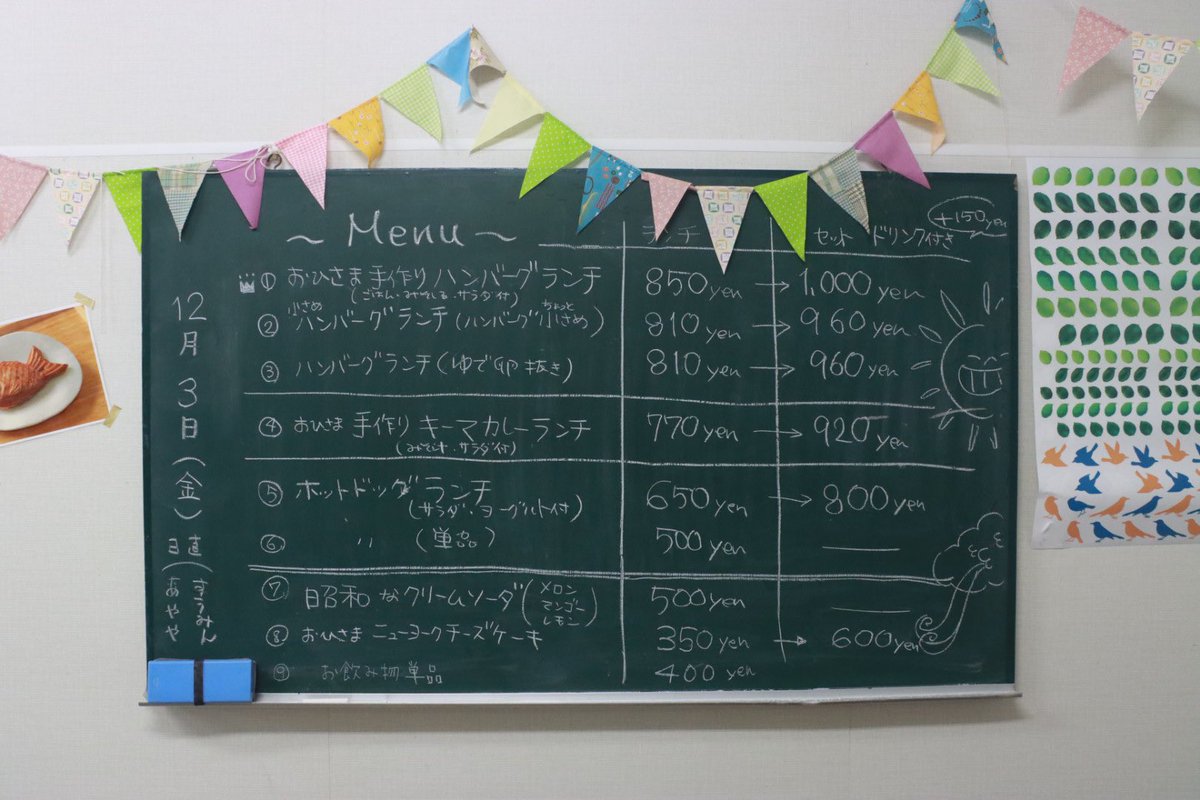 ~ Menu ~
ランチ
セット ドリンク付き
+150yen
① おひさま手作りハンバーグランチ 850yen → 1,000yen
(ごはん・みそしる・サラダ付)
小さめ ちょっと
② ハンバーグランチ(ハンバーグ小さめ) 810yen → 960yen
③ ハンバーグランチ(ゆで卵抜き) 810yen → 960yen
④ おひさま 手作り キーマカレーランチ 770yen → 920yen
(みそ汁・サラダ付)
⑤ ホットドッグランチ 650yen → 800yen
(サラダ・ヨーグルト付)
⑥ 〃 (単品) 500yen
⑦ 昭和なクリームソーダ(メロン マンゴー レモン) 500yen
⑧ おひさま ニューヨークチーズケーキ 350yen → 600yen
⑨ お飲み物単品 400yen
12月3日(金)
日直
きうみん
あやや